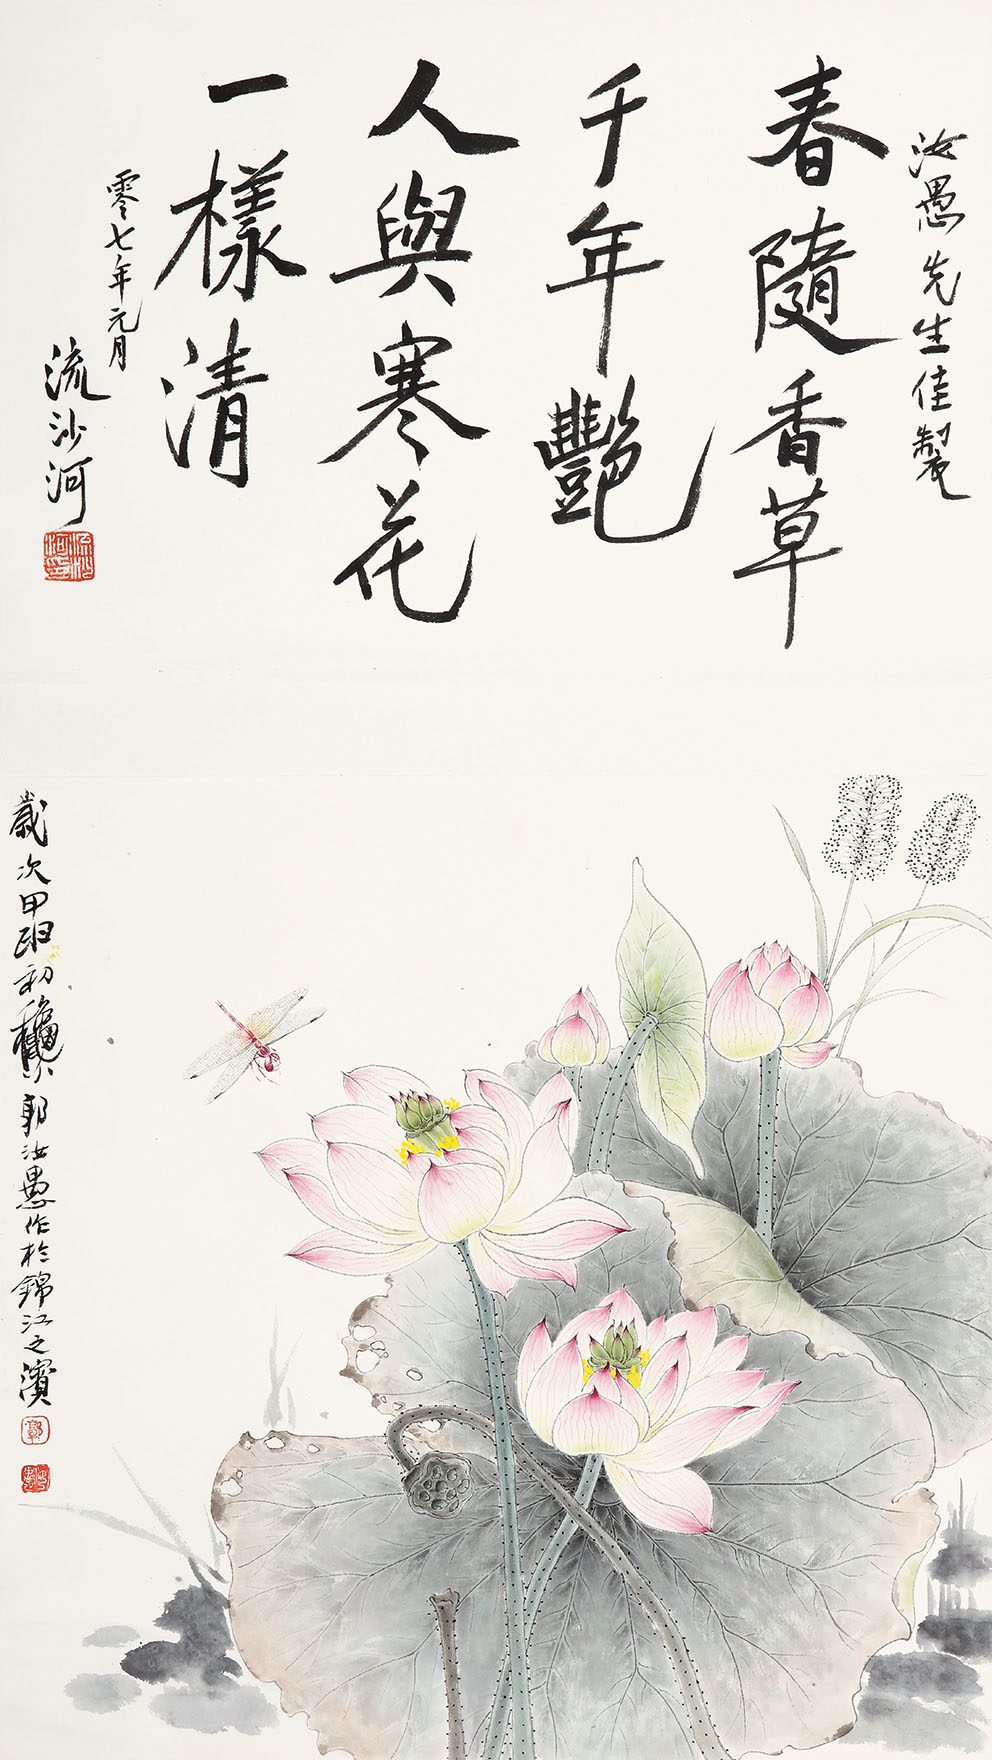 汝愚先生佳製
春隨香草
千年艷
人與寒花
一樣清
零七年元月
流沙河
流沙河印
歲次甲申初龝郭汝愚作於錦江之濱
郭
汝愚